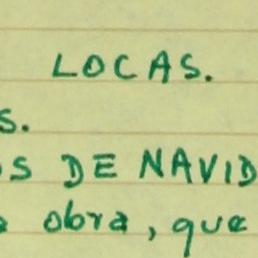 LOCAS.
S.
OS DE NAVID
obra, que